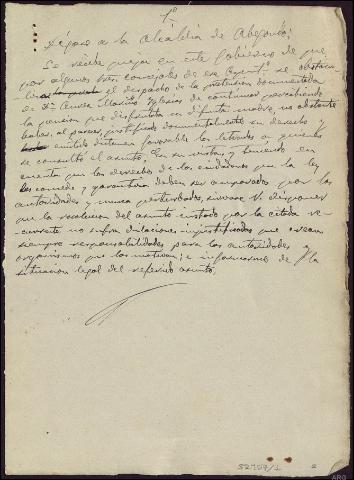 1º
Dígase a la Alcaldía de Abegondo:
Se recibe queja en este Gobierno de que
por algunos Sres. concejales de ese Ayunt.º se obstacu-
liza el despacho de la pretensión documentada
de Dª Iglesias de continuar percibiendo
la pensión que disfrutaba su difunta madre, no obstante
haber, al parecer, justificado documentalmente su derecho y
emitido dictamen favorable los letrados a quienes
se consultó el asunto. En su vista, y teniendo en
cuenta que los derechos de los ciudadanos que la ley
les concede y garantiza deben ser amparados por las
autoridades y nunca perturbados, sírvase V. disponer
que la resolución del asunto instado por la citada re-
currente no sufra dilaciones injustificadas que crean
siempre responsabilidades para las autoridades u
organismos que las motivan; e informarme de la
situación legal del referido asunto.
52707/1
2
ARG